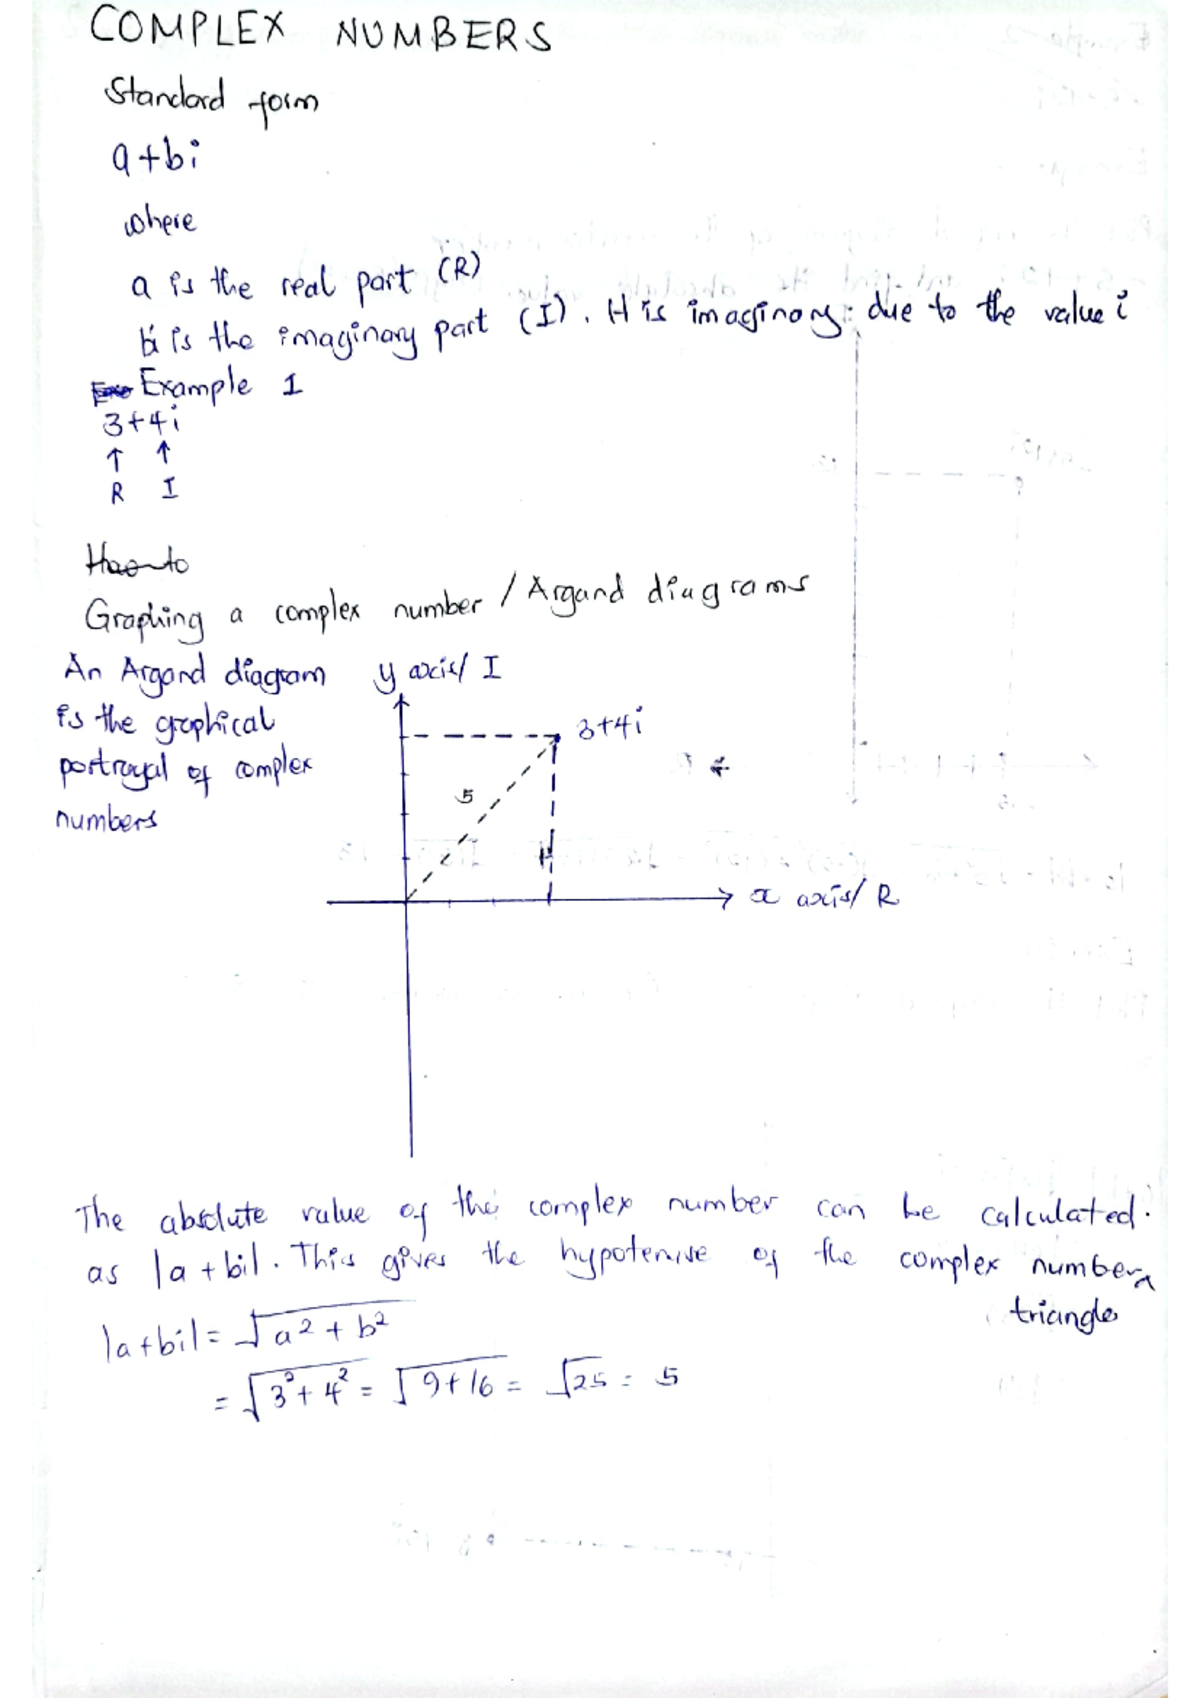 COMPLEX NUMBERS
Standard form
a+bi
where
a is the real part (R)
bi is the imaginary part (I). It is imaginary due to the value i
Example 1
3+4i
↑ ↑
R I
How to
Graphing a complex number / Argand diagrams
An Argand diagram
is the graphical
portrayal of complex
numbers
y axis/ I
3+4i
5
4
x axis/ R
The absolute value of the complex number can be calculated.
as |a+bi|. This gives the hypotenuse of the complex number
triangle
|a+bi| = √a²+b²
= √3²+4² = √9+16 = √25 = 5